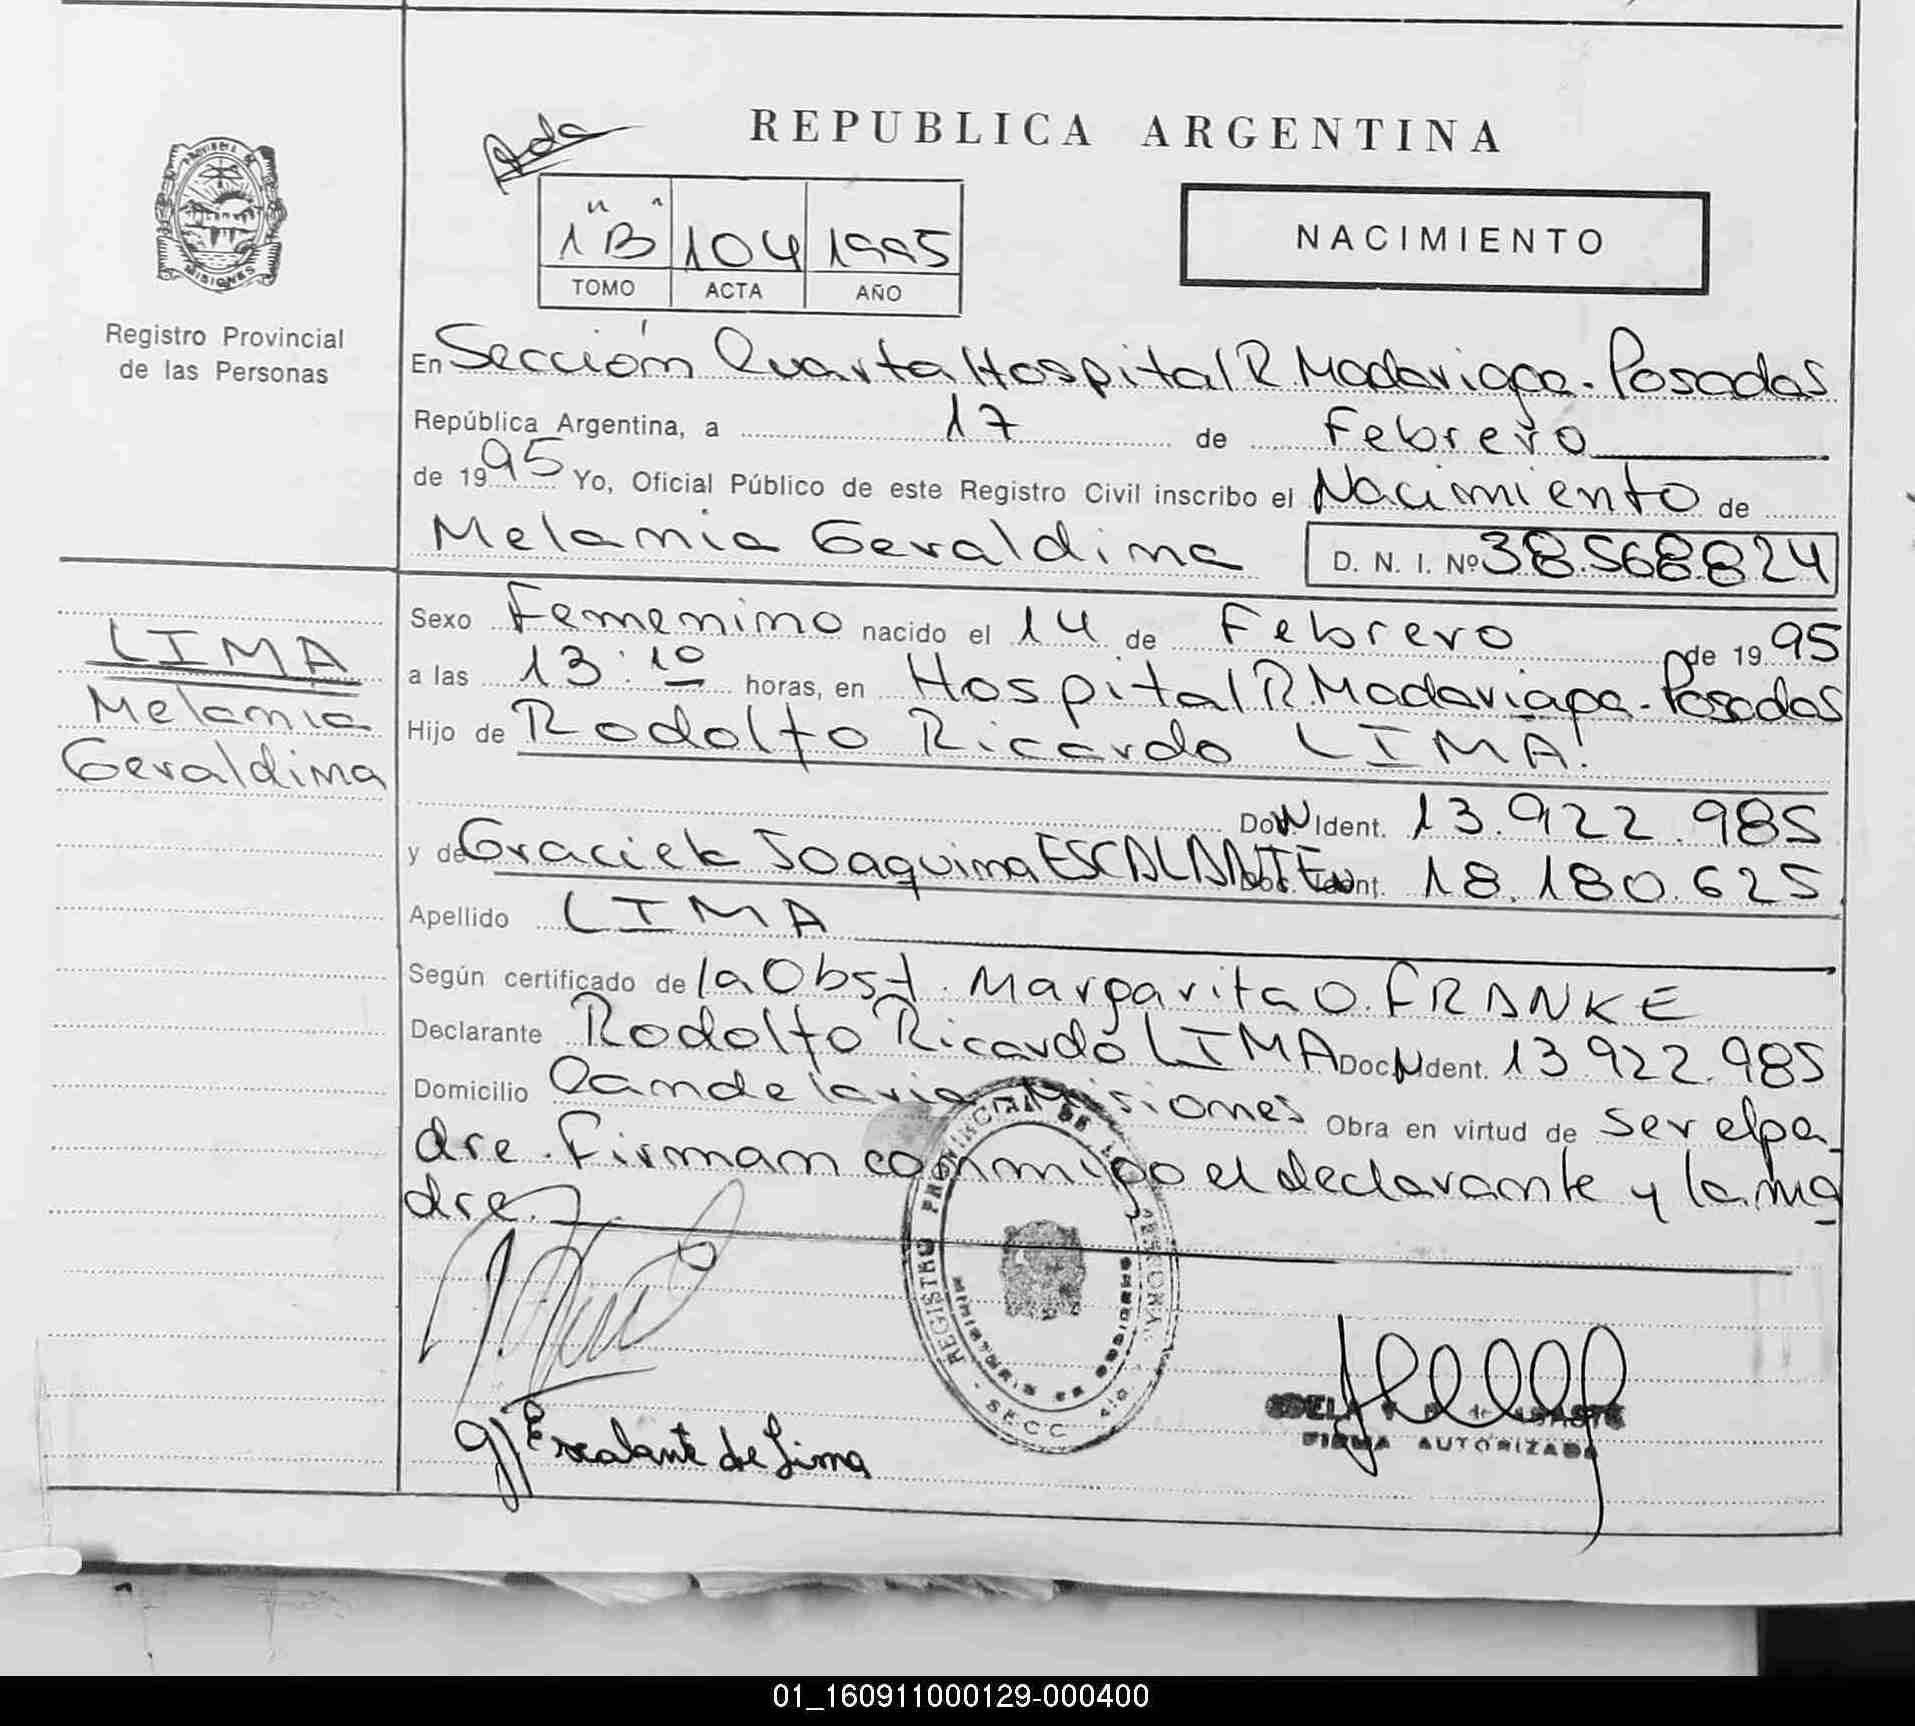 Ada
REPUBLICA ARGENTINA
1 "B" 104 1995
TOMO ACTA AÑO
NACIMIENTO
PROVINCIA DE MISIONES
Registro Provincial
de las Personas
En Sección Cuarta Hospital R. Madariaga - Posadas
República Argentina, a 17 de Febrero
de 1995 Yo, Oficial Público de este Registro Civil inscribo el Nacimiento de
Melania Geraldina D. N. I. Nº 38.568.824
LIMA
Melania
Geraldina
Sexo Femenino nacido el 14 de Febrero de 1995
a las 13:10 horas, en Hospital R. Madariaga - Posadas
Hijo de Rodolfo Ricardo LIMA.
Doc. Ident. 13.922.985
y de Graciela Joaquina ESCALANTE Doc. Ident. 18.180.625
Apellido LIMA
Según certificado de la Obst. Margarita O. FRANKE
Declarante Rodolfo Ricardo LIMA Doc. Ident. 13.922.985
Domicilio Candelaria Misiones Obra en virtud de ser el pa_
dre. Firman conmigo el declarante y la ma
dre.
REGISTRO PROVINCIAL DE LAS PERSONAS
MINISTERIO DE GOBIERNO
SECC. 4ta
G Escalante de Lima
FIRMA AUTORIZADA
01_160911000129-000400